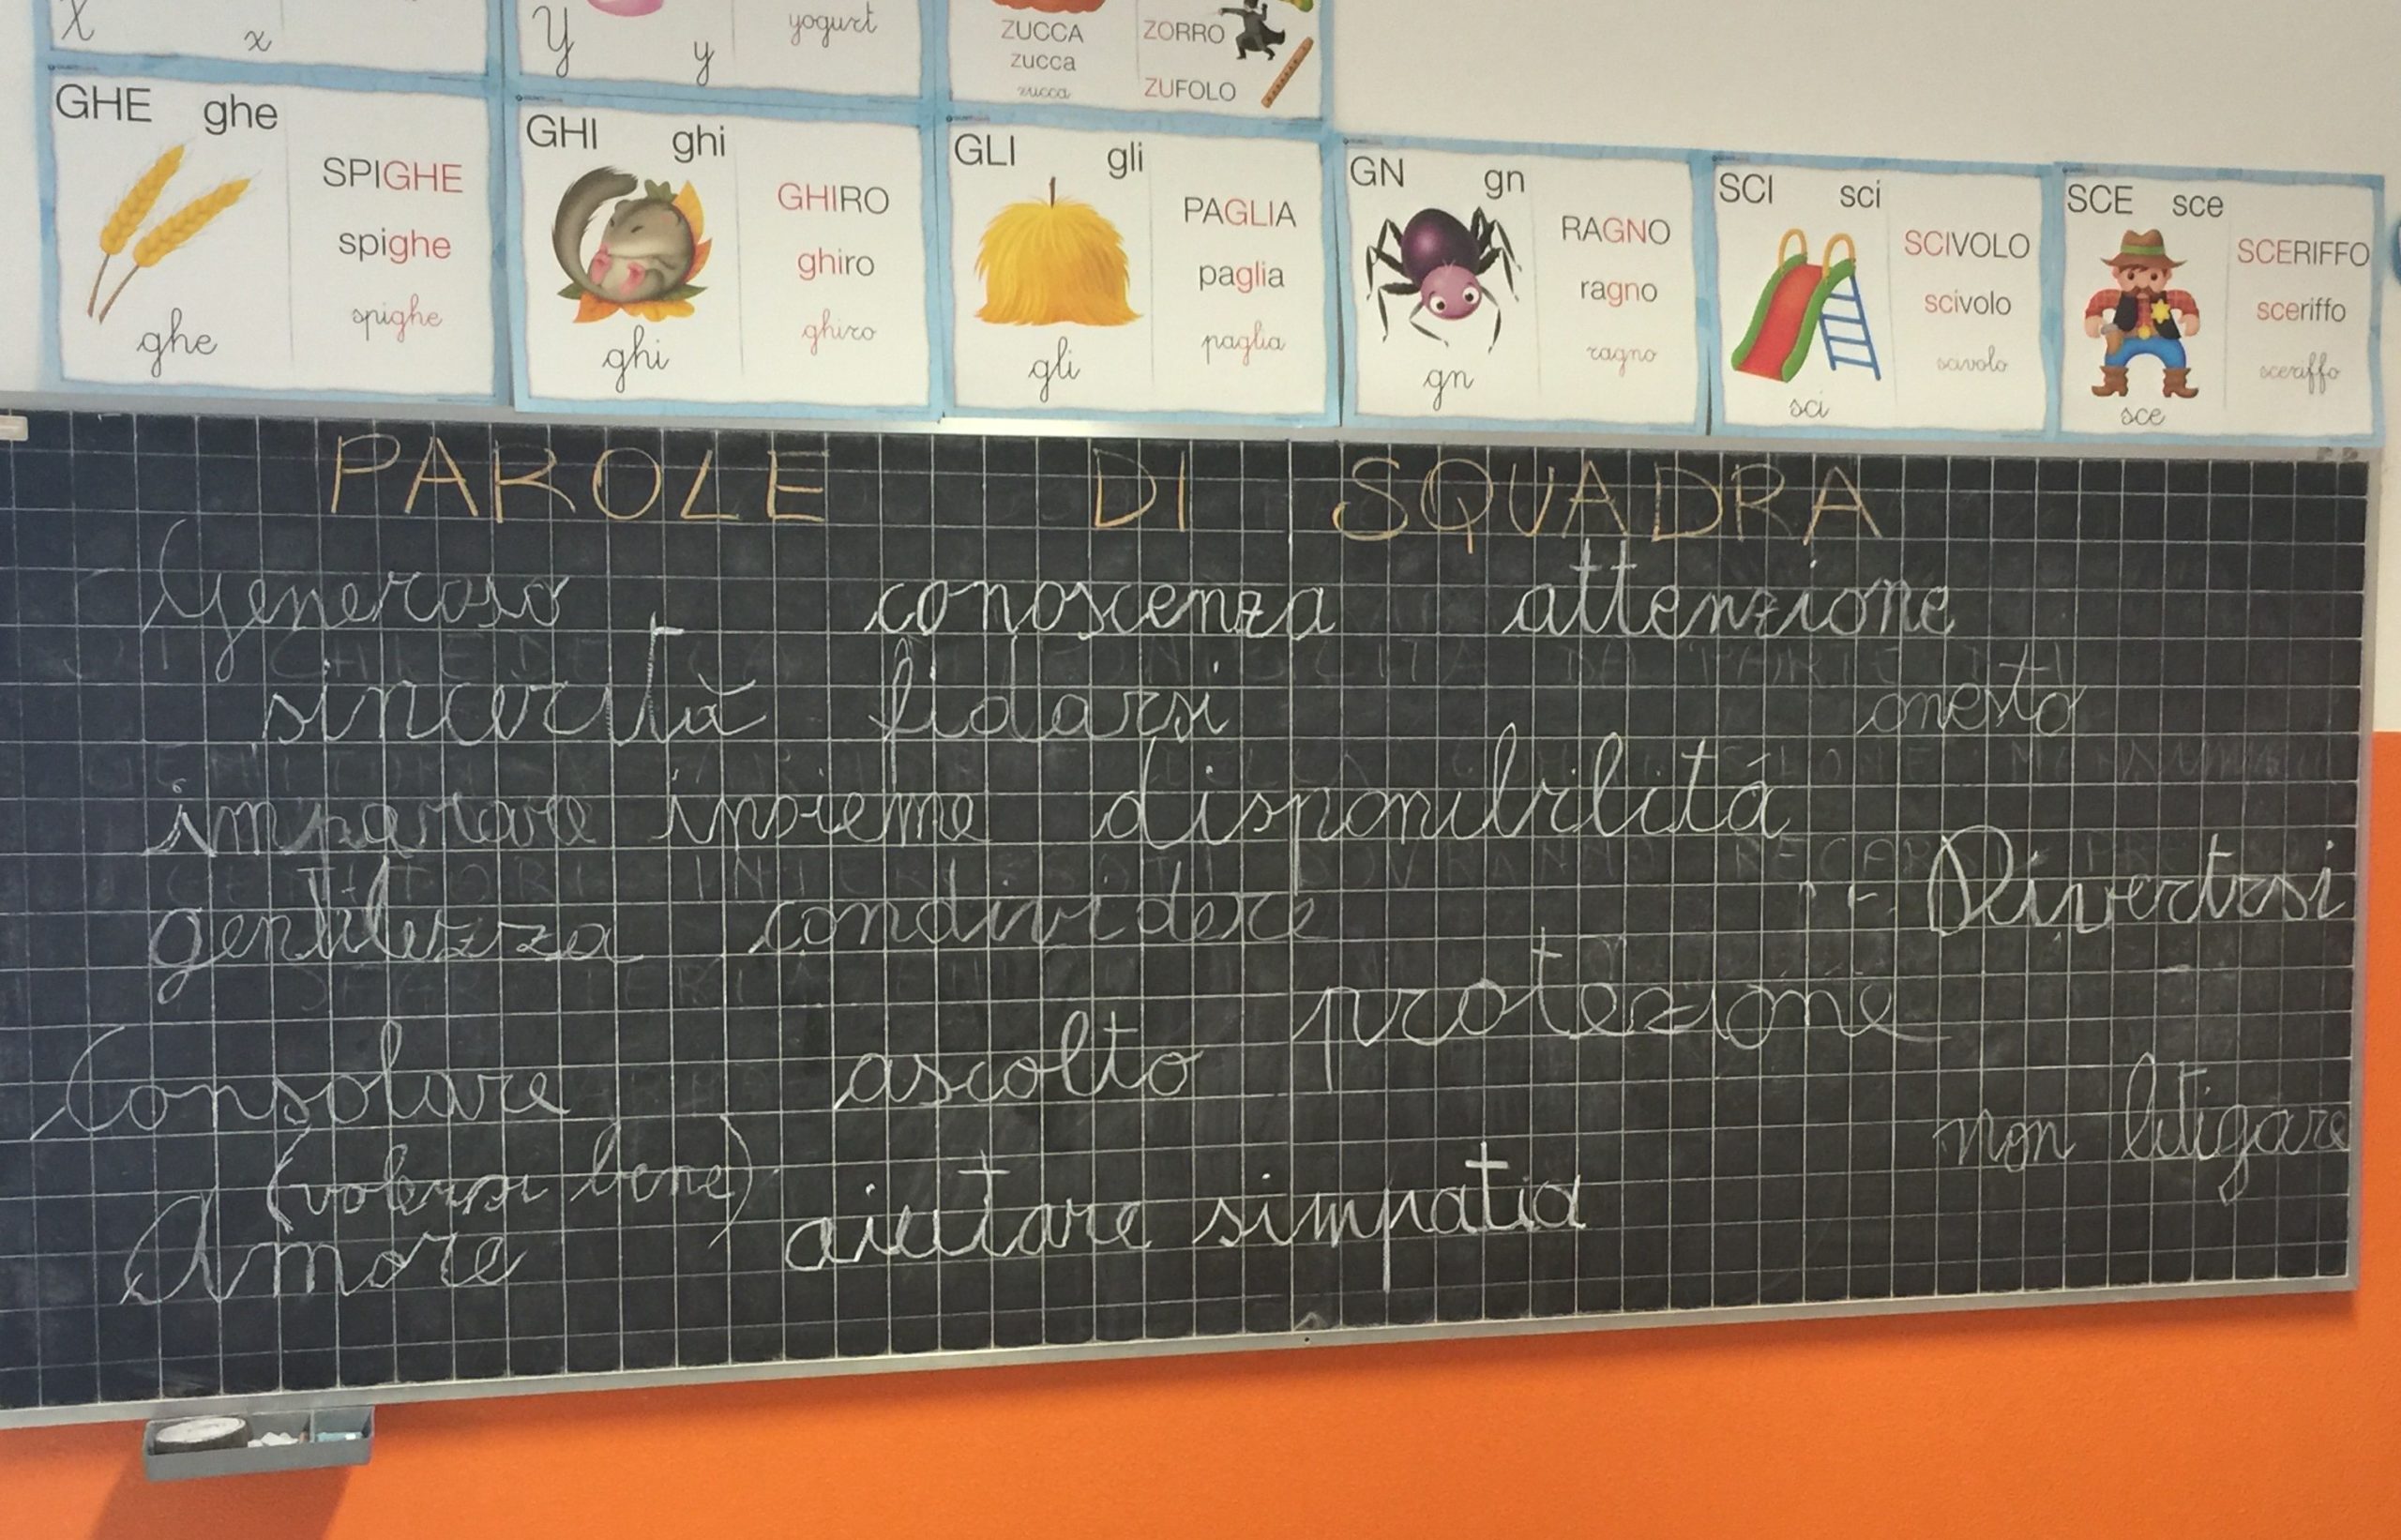 X x
Y y yogurt
ZUCCA
zucca
zucca
ZORRO
ZUFOLO
GHE ghe
SPIGHE
spighe
spighe
ghe
GHI ghi
GHIRO
ghiro
ghiro
ghi
GLI gli
PAGLIA
paglia
paglia
gli
GN gn
RAGNO
ragno
ragno
gn
SCI sci
SCIVOLO
scivolo
scivolo
sci
SCE sce
SCERIFFO
sceriffo
sceriffo
sce
PAROLE DI SQUADRA
Generoso conoscenza attenzione
sincerità fidarsi onesto
imparare insieme disponibilitá
gentilezza condividere Divertirsi
protezione
Consolare ascolto
non litigare
(volersi bene)
Amore aiutare simpatia